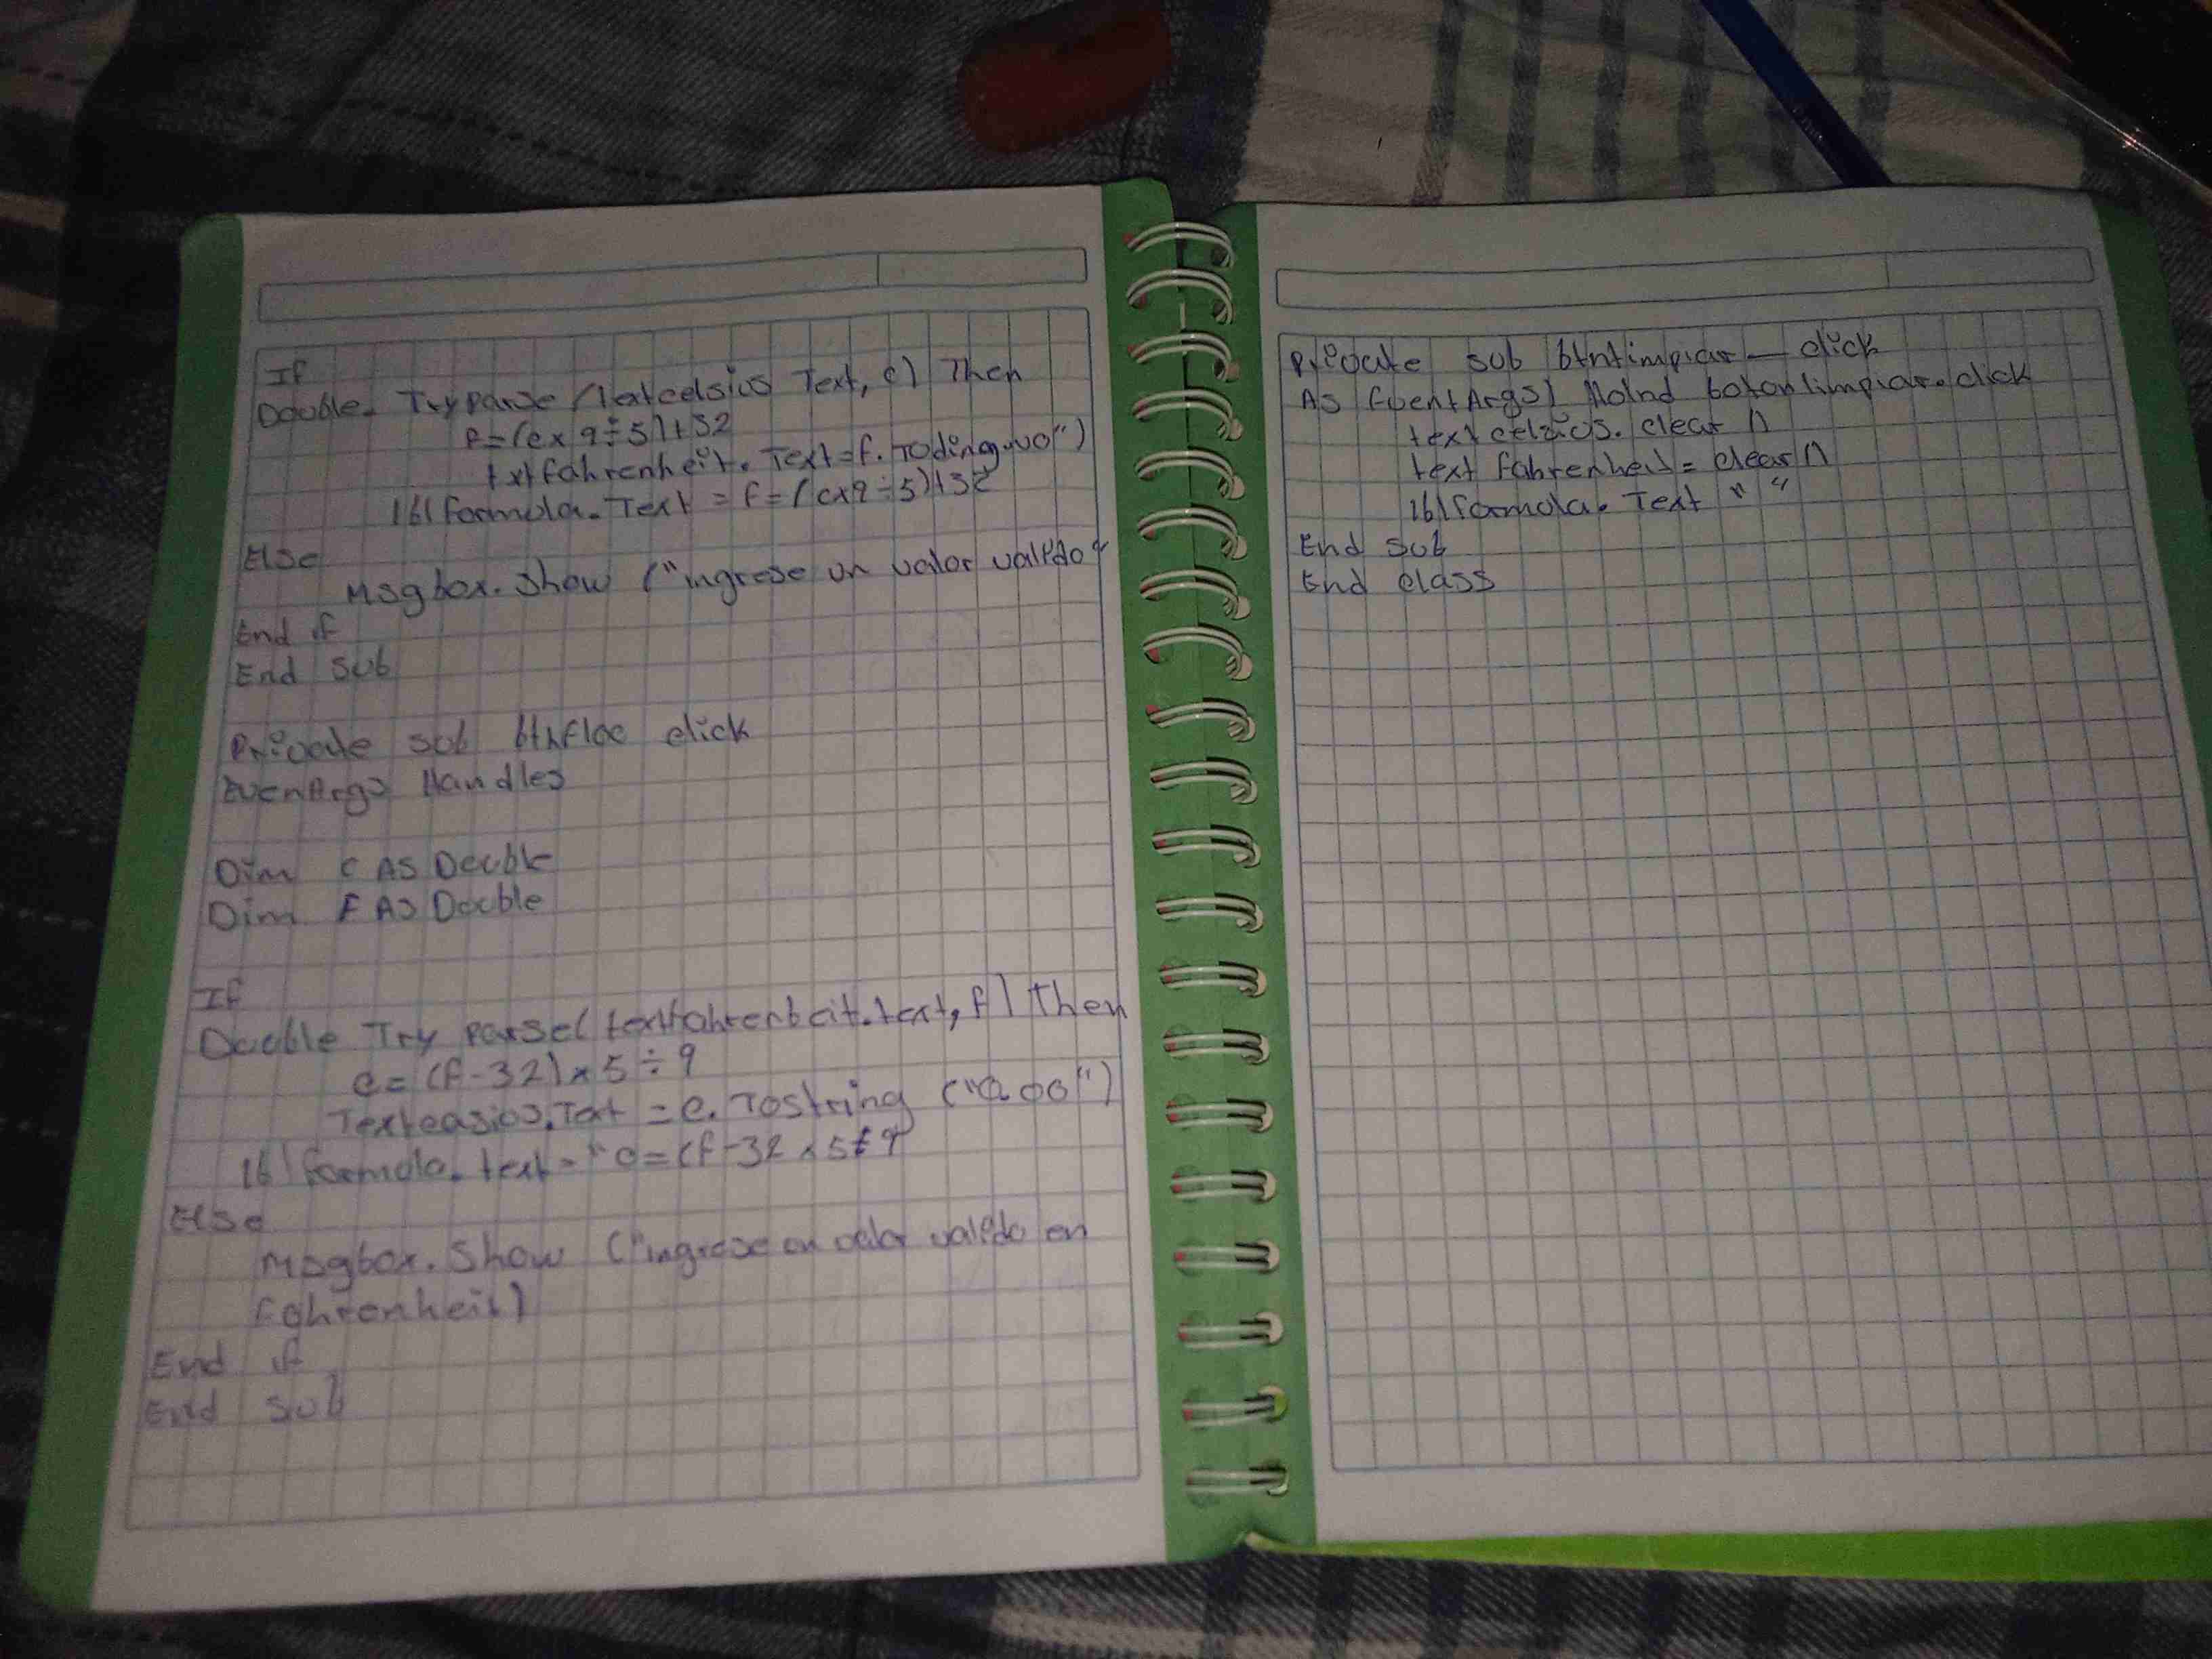 If
Double. Try parse (textcelsius Text, c) Then
F=(cx9÷5)+32
txtfahrenheit. Text=f.
lblformula. Text = f=(cx9÷5)+32
Else
Msgbox. Show ("ingrese un valor valido"
End if
End sub
Private sub click
EvenArgs Handles
Dim C AS Double
Dim F AS Double
If
Double Try parse( textfahrenheit.text, f) Then
c= (f-32)x5÷9
.Text =c. ToString ("0.00")
lblformula. text = "c=(f-32x5÷9
Else
Msgbox. Show ("ingrese un valor valido en
fahrenheit)
End if
End sub
Private sub btnlimpiar_click
As EventArgs) botonlimpiar.click
text celzius. clear ()
text fahrenheit= clear()
lblformula. Text " "
End sub
End class